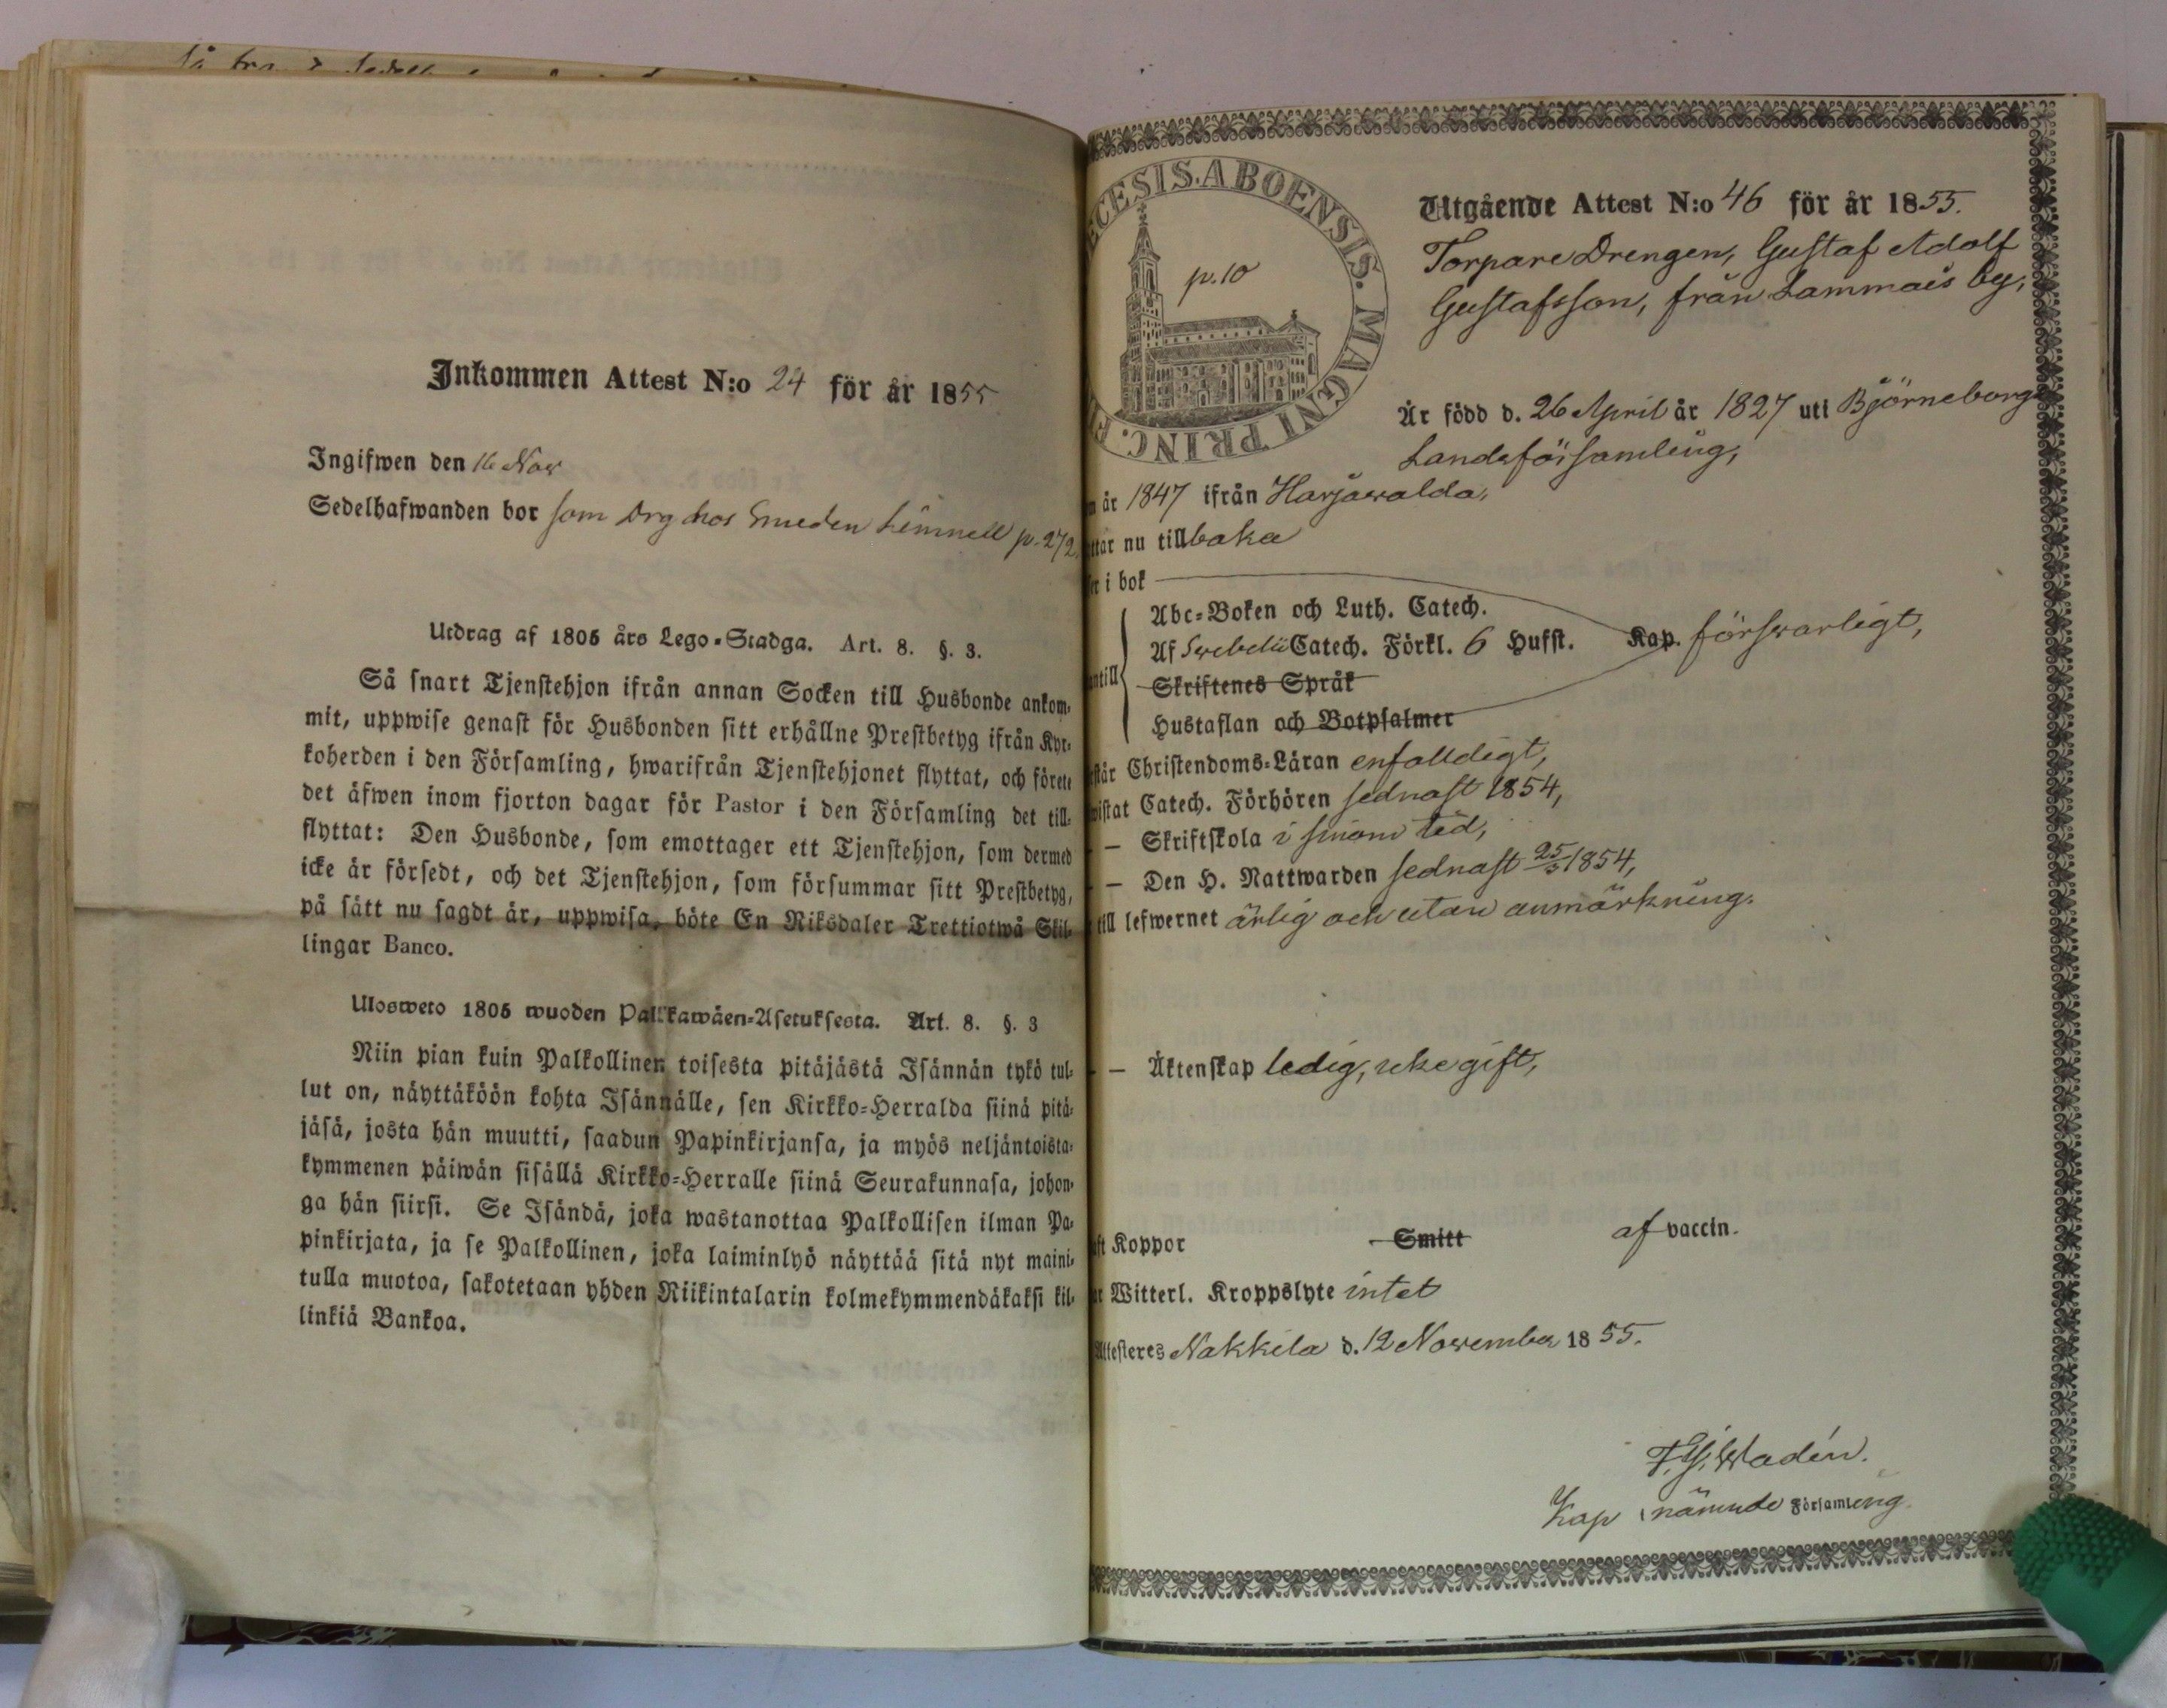 Inkommen Attest N:o 24 för år 1855
Ingifwen den 16 Nov
Sedelhafwanden bor som Drg hos Smeden Limnell p. 272.
Utdrag af 1805 års Lego-Stadga. Art. 8. §. 3.
Så snart Tjenstehjon ifrån annan Socken till Husbonde ankom-
mit, uppwise genast för Husbonden sitt erhållne Prestbetyg ifrån Kyr-
koherden i den Församling, hwarifrån Tjenstehjonet flyttat, och förete
det äfwen inom fjorton dagar för Pastor i den Församling det till-
flyttat: Den Husbonde, som emottager ett Tjenstehjon, som dermed
icke är försedt, och det Tjenstehjon, som försummar sitt Prestbetyg,
på sätt nu sagdt är, uppwisa, böte En Riksdaler Trettiotwå Skil-
lingar Banco.
Ulosweto 1805 wuoden Palkkawäen-Asetuksesta. Art. 8. §. 3
Niin pian kuin Palkollinen toisesta pitäjästä Isännän tykö tul-
lut on, näyttäköön kohta Isännälle, sen Kirkko-Herralda siinä pitä-
jäsä, josta hän muutti, saadun Papinkirjansa, ja myös neljäntoista-
kymmenen päiwän sisällä Kirkko-Herralle siinä Seurakunnasa, johon-
ga hän siirsi. Se Isändä, joka wastanottaa Palkollisen ilman Pa-
pinkirjata, ja se Palkollinen, joka laiminlyö näyttää sitä nyt maini-
tulla muotoa, sakotetaan yhden Riikintalarin kolmekymmendäkaksi kil-
linkiä Bankoa.
ECESIS. ABOENSIS. MAGNI PRINC. F
p. 10
Utgående Attest N:o 46 för år 1855.
Torpare Drengen, Gustaf Adolf
Gustafsson, från Lammais by,
Är född d. 26 April år 1827 uti Björneborgs
Landsförsamling,
n år 1847 ifrån Harjawalda,
ttar nu tillbaka
er i bok
Abc-Boken och Luth. Catech.
Af Swebelii Catech. Förkl. 6 Hufst. Kap. förswarligt,
antill
Skriftenes Språk
Hustaflan och Botpsalmer
står Christendoms-Läran enfalldigt,
wistat Catech. Förhören sednast 1854,
— Skriftskola i sinom tid,
— Den H. Nattwarden sednast 25/3 1854,
till lefwernet ärlig och utan anmärkning.
— Äktenskap ledig, icke gift,
aft Koppor Smitt af vaccin.
ar Witterl. Kroppslyte intet
Attesteres Nakkila d. 12 November 1855.
F. G. Wadén.
Kap i nämnde Församling.